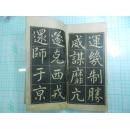 運幾制勝
威謀靡亢
遂克西戎
還師于京